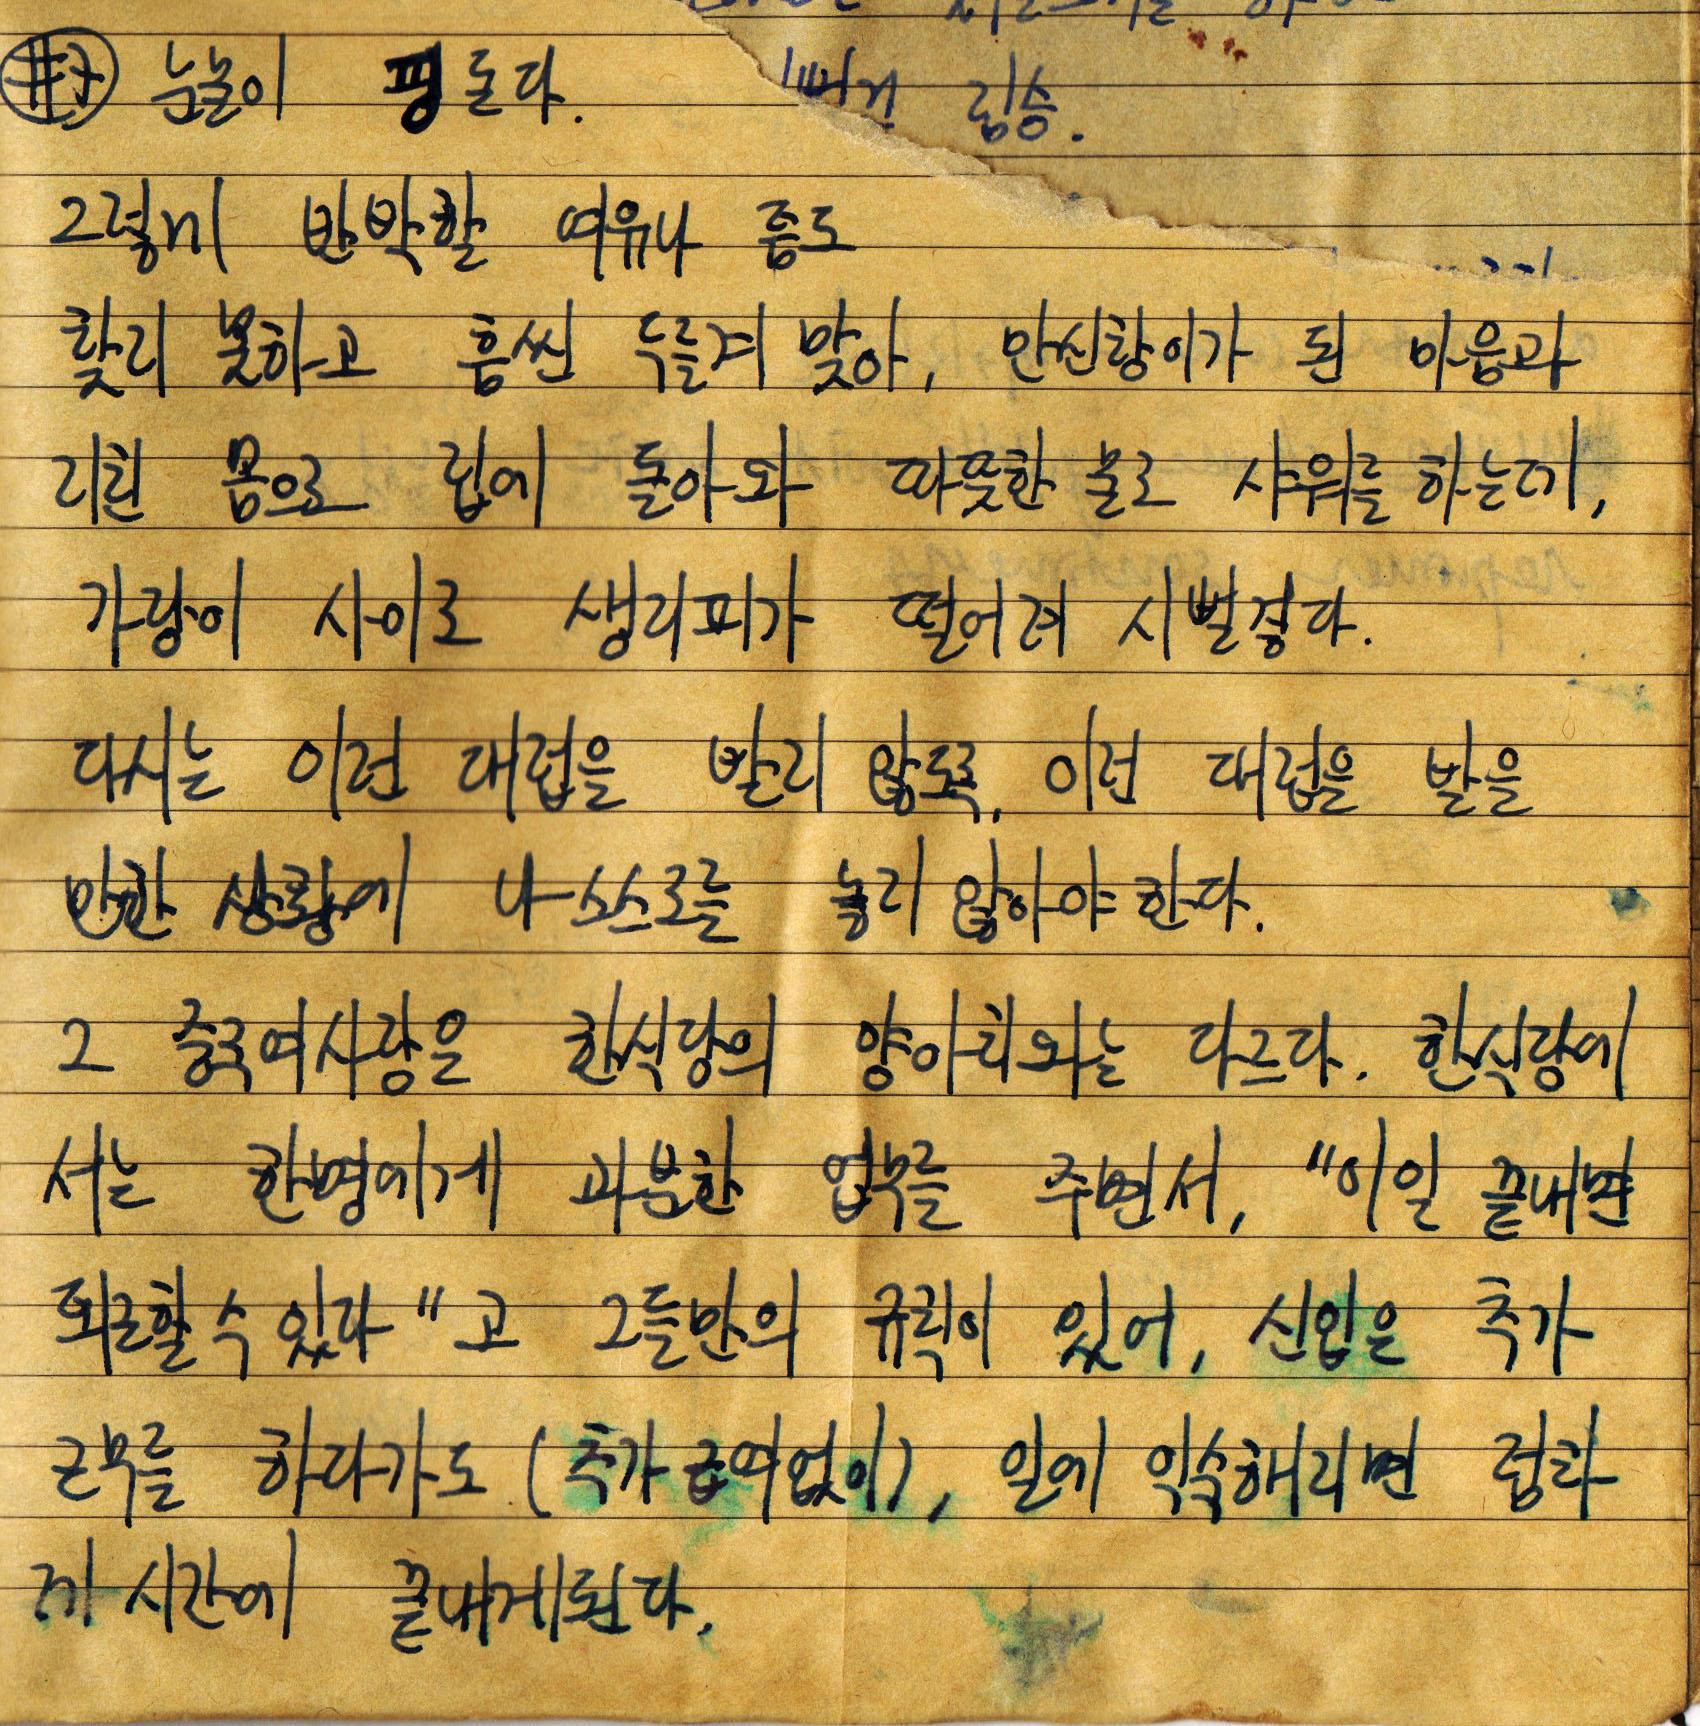 눈물이 핑 돈다. 짐승.
그렇게 반박할 여유나 틈도
찾지 못하고 흠씬 두들겨 맞아, 만신창이가 된 마음과
지친 몸으로 집에 돌아와 따뜻한 물로 샤워를 하는데,
가랑이 사이로 생리피가 떨어져 시뻘겋다.
다시는 이런 대접을 받지 않도록, 이런 대접을 받을
만한 상황에 나 스스로를 놓지 않아야 한다.
그 중국여사장은 한식당의 양아치와는 다르다. 한식당에
서는 한명에게 과분한 업무를 주면서, "이일 끝내면
퇴근할 수 있다"고 그들만의 규칙이 있어, 신입은 추가
근무를 하다가도 (추가 급여없이), 일에 익숙해지면 점차
제 시간에 끝내게된다.